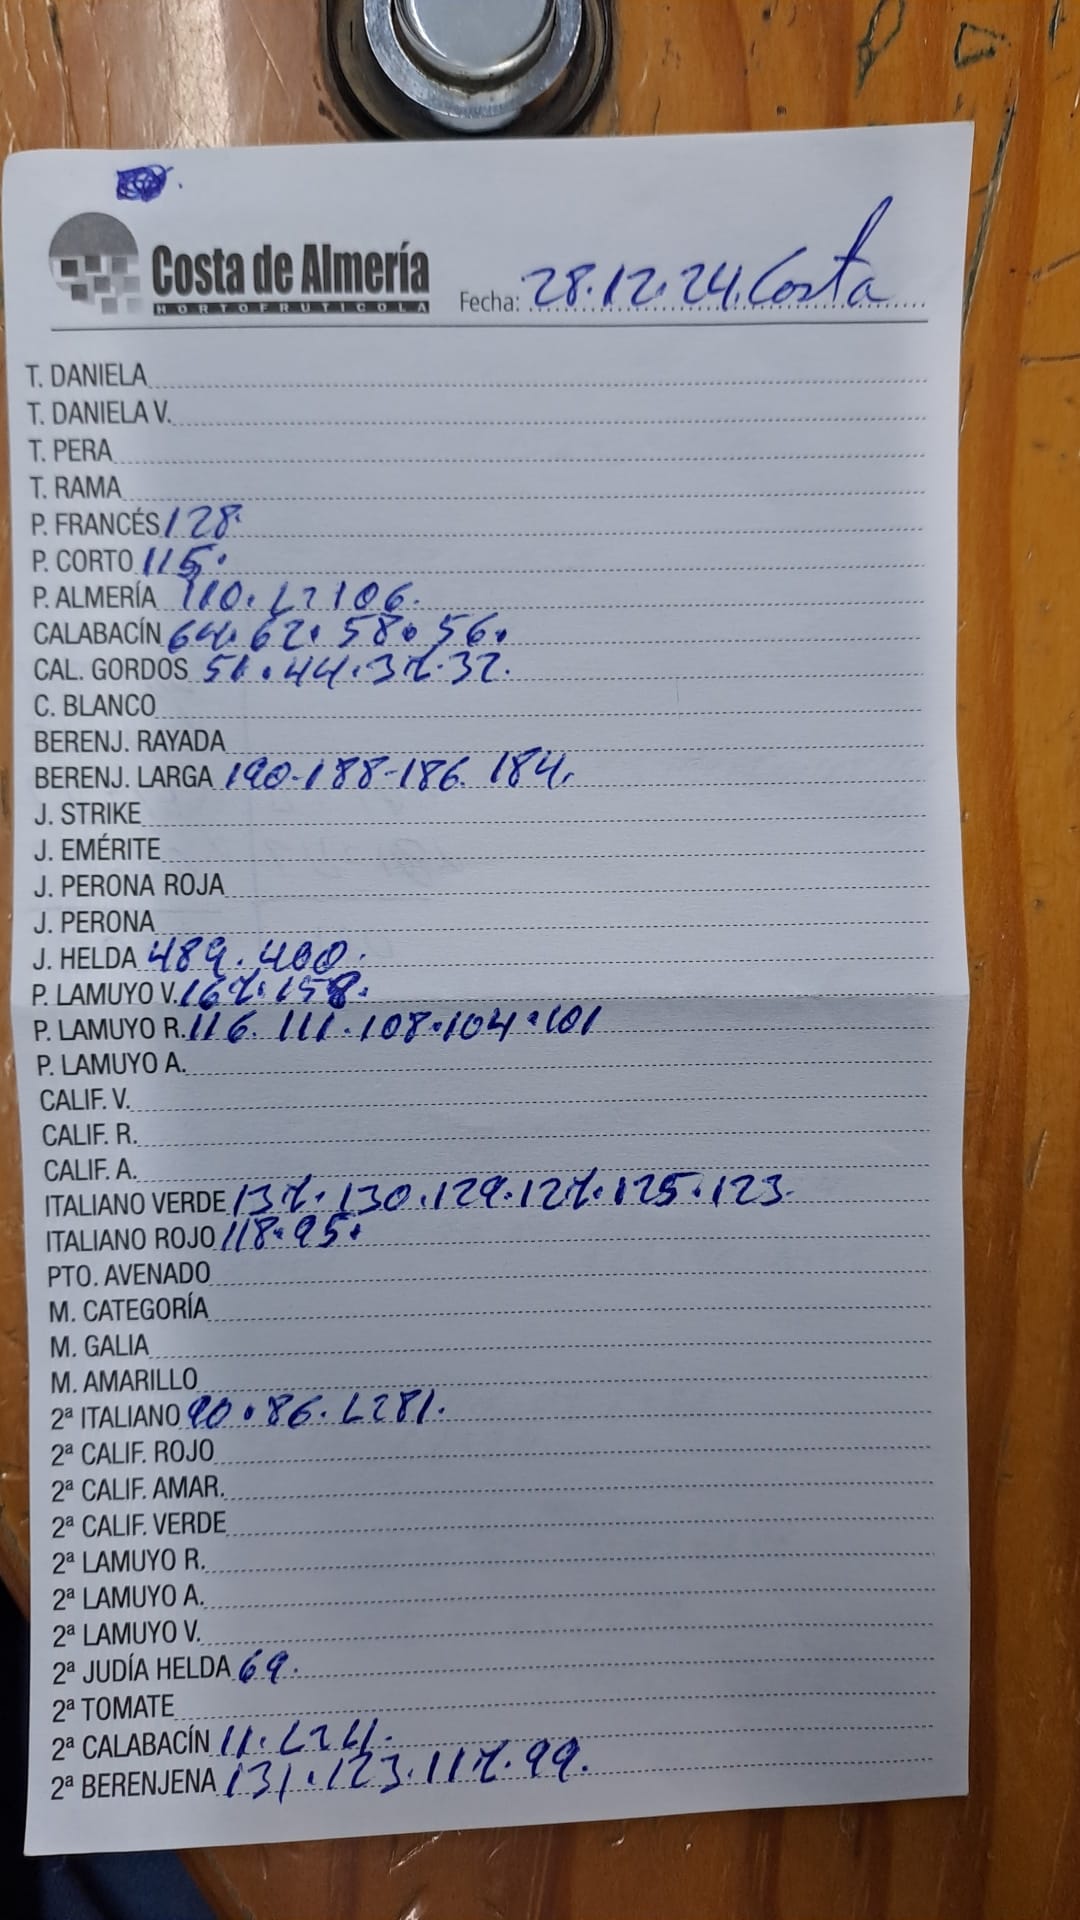 Costa de Almería
HORTOFRUTICOLA
Fecha: 28.12.24. Costa
T. DANIELA
T. DANIELA V.
T. PERA
T. RAMA
P. FRANCÉS 128.
P. CORTO 115.
P. ALMERÍA 110. L2 106.
CALABACÍN 64. 62. 58. 56.
CAL. GORDOS 51. 44. 37. 32.
C. BLANCO
BERENJ. RAYADA
BERENJ. LARGA 190-188-186. 184.
J. STRIKE
J. EMÉRITE
J. PERONA ROJA
J. PERONA
J. HELDA 489. 400.
P. LAMUYO V. 167. 158.
P. LAMUYO R. 116. 111. 108. 104. 101
P. LAMUYO A.
CALIF. V.
CALIF. R.
CALIF. A.
ITALIANO VERDE 137. 130. 129. 127. 125. 123.
ITALIANO ROJO 118. 95.
PTO. AVENADO
M. CATEGORÍA
M. GALIA
M. AMARILLO
2ª ITALIANO 90. 86. L2 81.
2ª CALIF. ROJO
2ª CALIF. AMAR.
2ª CALIF. VERDE
2ª LAMUYO R.
2ª LAMUYO A.
2ª LAMUYO V.
2ª JUDÍA HELDA 69.
2ª TOMATE
2ª CALABACÍN 11. L2 4.
2ª BERENJENA 131. 123. 117. 99.